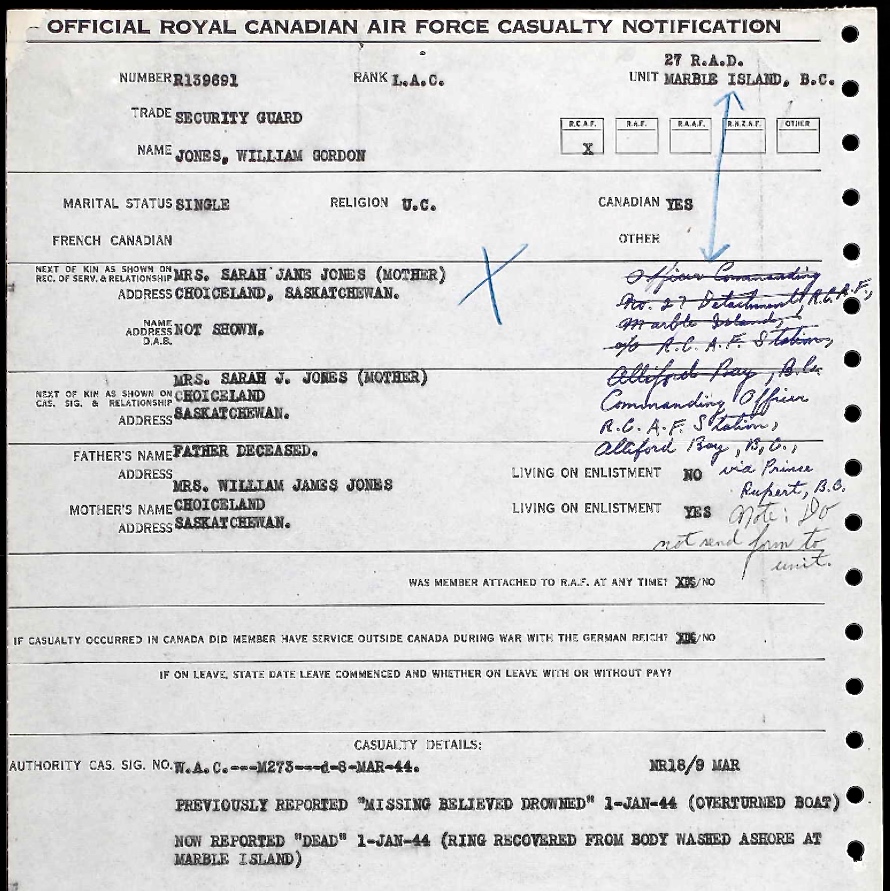 OFFICIAL ROYAL CANADIAN AIR FORCE CASUALTY NOTIFICATION
27 R.A.D.
NUMBER R159691 RANK L.A.C. UNIT MARBLE ISLAND, B.C.
TRADE SECURITY GUARD
R.C.A.F. R.A.F. R.A.A.F. R.N.Z.A.F. OTHER
X
NAME JONES, WILLIAM GORDON
MARITAL STATUS SINGLE RELIGION U.C. CANADIAN YES
FRENCH CANADIAN OTHER
NEXT OF KIN AS SHOWN ON
REC. OF SERV. & RELATIONSHIP MRS. SARAH JANE JONES (MOTHER)
ADDRESS CHOICELAND, SASKATCHEWAN.
Officer Commanding
No. 27 Detachment R.C.A.F.,
Marble Island,
c/o R.C.A.F. Station,
Alliford Bay, B.C.
NAME
ADDRESS NOT SHOWN.
D.A.B.
MRS. SARAH J. JONES (MOTHER)
NEXT OF KIN AS SHOWN ON CHOICELAND
CAS. SIG. & RELATIONSHIP
ADDRESS SASKATCHEWAN.
Commanding Officer
R.C.A.F. Station,
Alliford Bay, B.C.,
via Prince
Rupert, B.C.
Note: Do
not send form to
unit.
FATHER'S NAME FATHER DECEASED.
ADDRESS LIVING ON ENLISTMENT NO
MRS. WILLIAM JAMES JONES
MOTHER'S NAME CHOICELAND LIVING ON ENLISTMENT YES
ADDRESS SASKATCHEWAN.
WAS MEMBER ATTACHED TO R.A.F. AT ANY TIME? YES/NO
IF CASUALTY OCCURRED IN CANADA DID MEMBER HAVE SERVICE OUTSIDE CANADA DURING WAR WITH THE GERMAN REICH? YES/NO
IF ON LEAVE, STATE DATE LEAVE COMMENCED AND WHETHER ON LEAVE WITH OR WITHOUT PAY?
CASUALTY DETAILS:
AUTHORITY CAS. SIG. NO. W.A.C.---M273---d-8-MAR-44. NR18/9 MAR
PREVIOUSLY REPORTED "MISSING BELIEVED DROWNED" 1-JAN-44 (OVERTURNED BOAT)
NOW REPORTED "DEAD" 1-JAN-44 (RING RECOVERED FROM BODY WASHED ASHORE AT
MARBLE ISLAND)